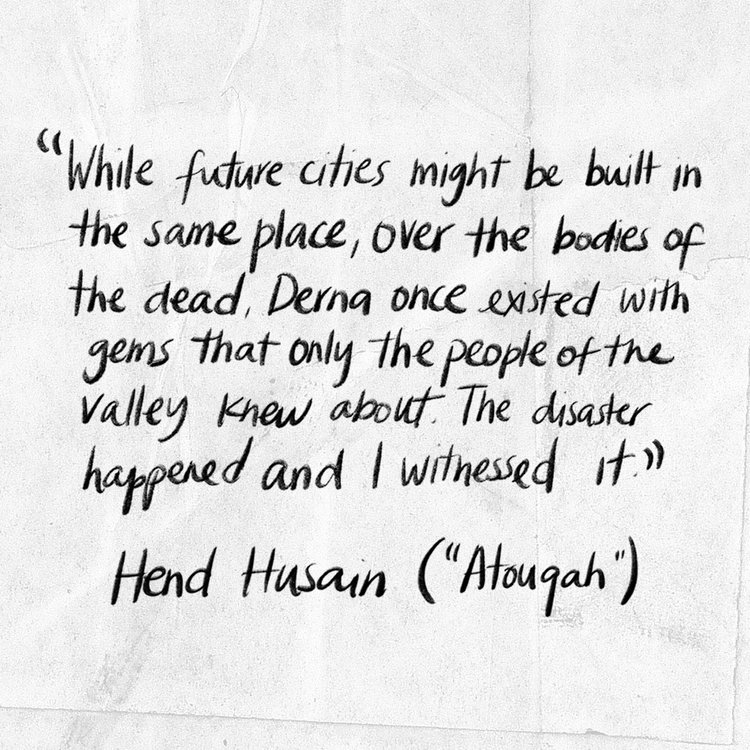 “While future cities might be built in
the same place, over the bodies of
the dead, Derna once existed with
gems that only the people of the
valley knew about. The disaster
happened and I witnessed it.”
Hend Husain ("Atouqah")